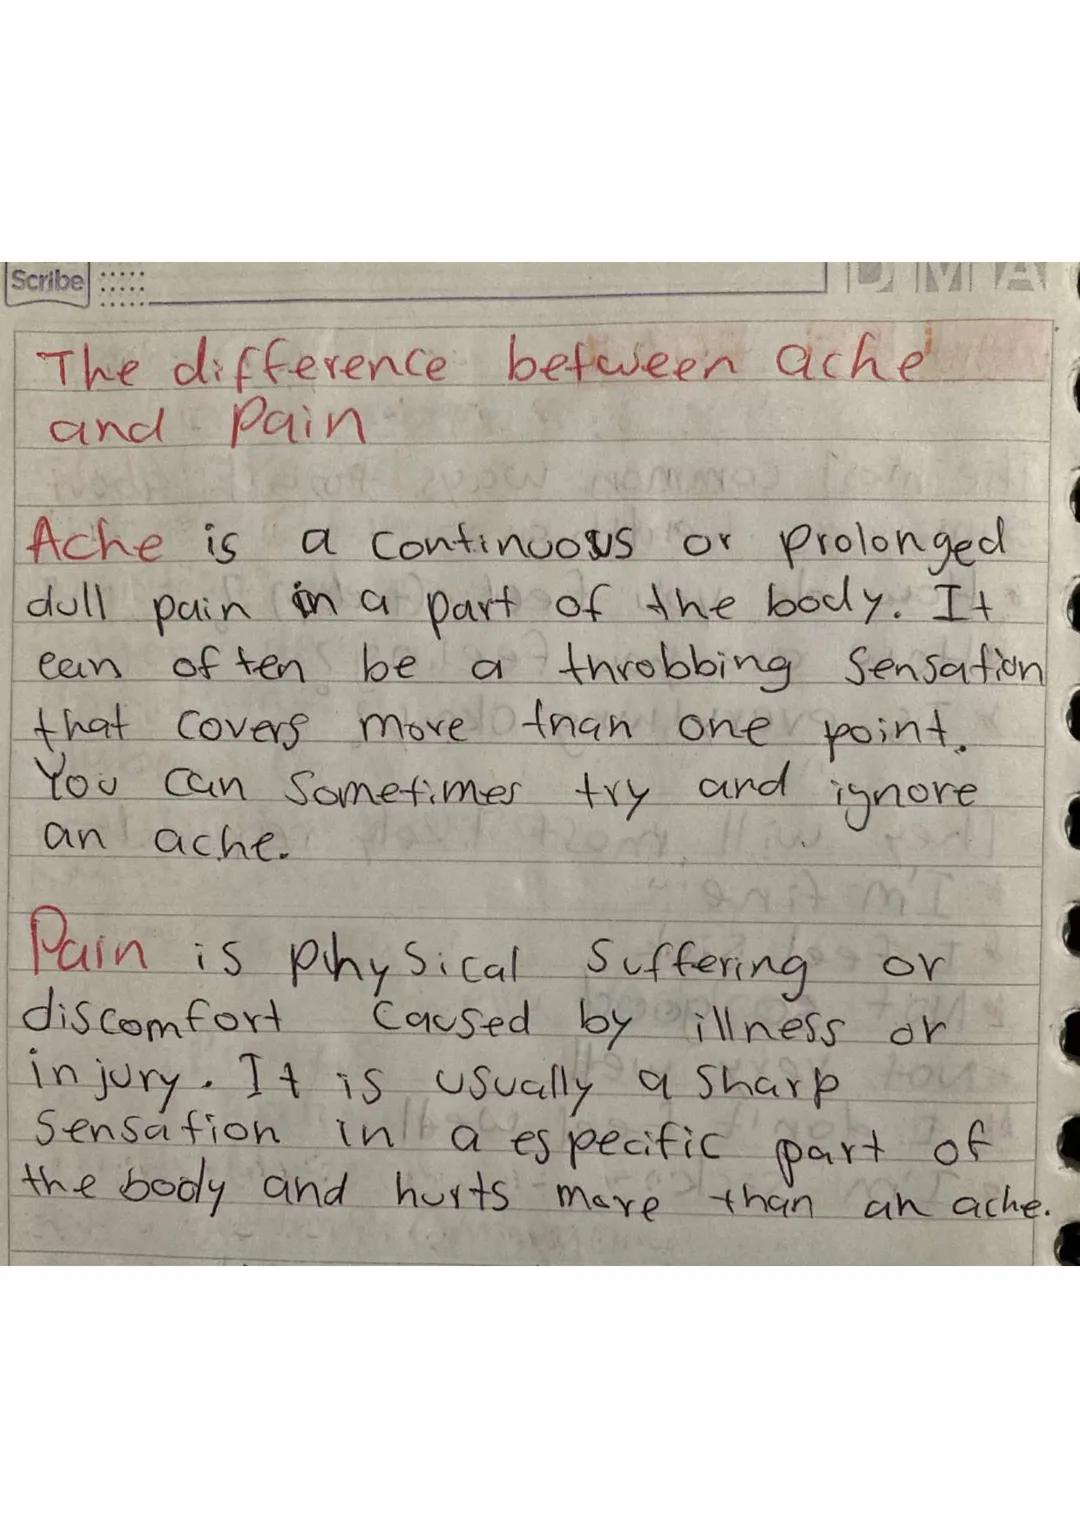 Scribe
D M A
The difference between ache
and Pain
Ache is a continuous or prolonged
dull pain in a part of the body. It
can often be a throbbing sensation
that covers more than one point.
You can sometimes try and ignore
an ache.
Pain is physical suffering or
discomfort caused by illness or
injury. It is usually a sharp
sensation in a especific part of
the body and hurts more than an ache.